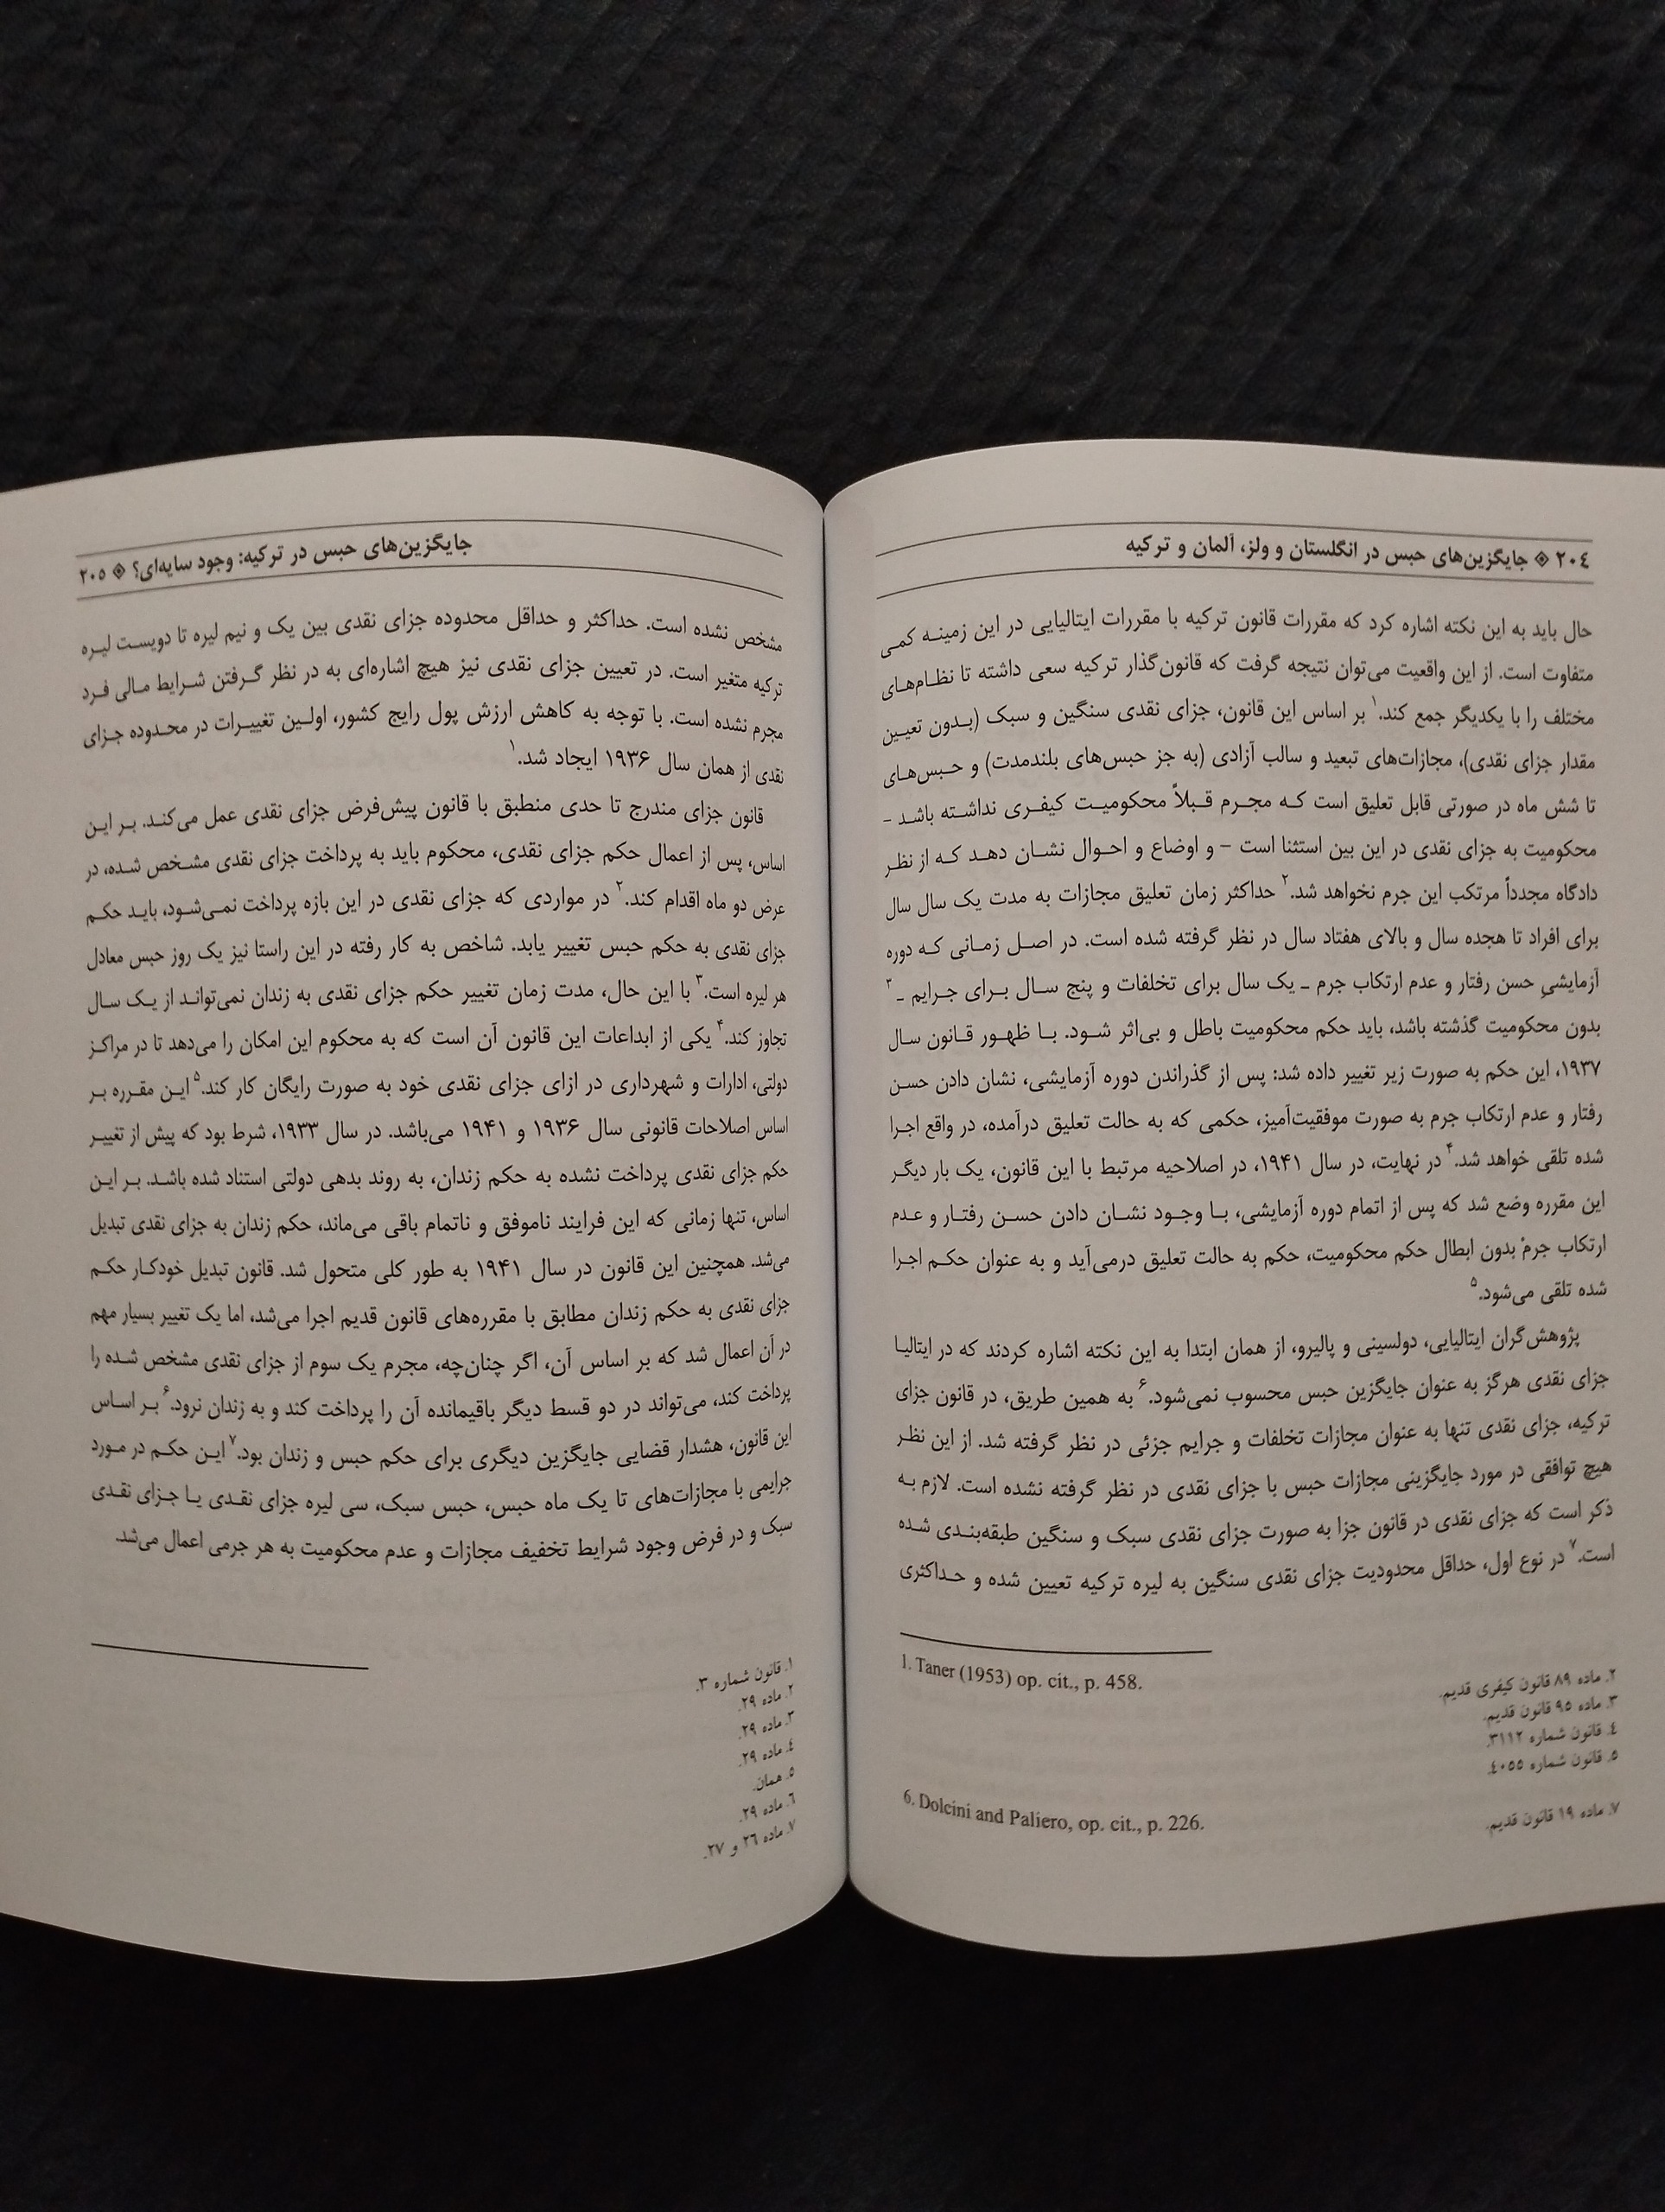 ۲۰۴ ◈ جایگزین‌های حبس در انگلستان و ولز، آلمان و ترکیه
حال باید به این نکته اشاره کرد که مقررات قانون ترکیه با مقررات ایتالیایی در این زمینه کمی
متفاوت است. از این واقعیت می‌توان نتیجه گرفت که قانون‌گذار ترکیه سعی داشته تا نظام‌های
مختلف را با یکدیگر جمع کند.۱ بر اساس این قانون، جزای نقدی سنگین و سبک (بدون تعیین
مقدار جزای نقدی)، مجازات‌های تبعید و سالب آزادی (به جز حبس‌های بلندمدت) و حبس‌های
تا شش ماه در صورتی قابل تعلیق است که مجرم قبلاً محکومیت کیفری نداشته باشد –
محکومیت به جزای نقدی در این بین استثنا است – و اوضاع و احوال نشان دهد که از نظر
دادگاه مجدداً مرتکب این جرم نخواهد شد.۲ حداکثر زمان تعلیق مجازات به مدت یک سال سال
برای افراد تا هجده سال و بالای هفتاد سال در نظر گرفته شده است. در اصل زمانی که دوره
آزمایشیِ حسن رفتار و عدم ارتکاب جرم ـ یک سال برای تخلفات و پنج سال برای جرایم ـ۳
بدون محکومیت گذشته باشد، باید حکم محکومیت باطل و بی‌اثر شود. با ظهور قانون سال
۱۹۳۷، این حکم به صورت زیر تغییر داده شد: پس از گذراندن دوره آزمایشی، نشان دادن حسن
رفتار و عدم ارتکاب جرم به صورت موفقیت‌آمیز، حکمی که به حالت تعلیق درآمده، در واقع اجرا
شده تلقی خواهد شد.۴ در نهایت، در سال ۱۹۴۱، در اصلاحیه مرتبط با این قانون، یک بار دیگر
این مقرره وضع شد که پس از اتمام دوره آزمایشی، با وجود نشان دادن حسن رفتار و عدم
ارتکاب جرمْ بدون ابطال حکم محکومیت، حکم به حالت تعلیق درمی‌آید و به عنوان حکم اجرا
شده تلقی می‌شود.۵
پژوهش‌گران ایتالیایی، دولسینی و پالیرو، از همان ابتدا به این نکته اشاره کردند که در ایتالیا
جزای نقدی هرگز به عنوان جایگزین حبس محسوب نمی‌شود.۶ به همین طریق، در قانون جزای
ترکیه، جزای نقدی تنها به عنوان مجازات تخلفات و جرایم جزئی در نظر گرفته شد. از این نظر
هیچ توافقی در مورد جایگزینی مجازات حبس با جزای نقدی در نظر گرفته نشده است. لازم به
ذکر است که جزای نقدی در قانون جزا به صورت جزای نقدی سبک و سنگین طبقه‌بندی شده
است.۷ در نوع اول، حداقل محدودیت جزای نقدی سنگین به لیره ترکیه تعیین شده و حداکثری
1. Taner (1953) op. cit., p. 458.
۲. ماده ۸۹ قانون کیفری قدیم.
۳. ماده ۹۵ قانون قدیم.
۴. قانون شماره ۳۱۱۲.
۵. قانون شماره ۴۰۵۵.
6. Dolcini and Paliero, op. cit., p. 226.
۷. ماده ۱۹ قانون قدیم.
جایگزین‌های حبس در ترکیه: وجود سایه‌ای؟ ◈ ۲۰۵
مشخص نشده است. حداکثر و حداقل محدوده جزای نقدی بین یک و نیم لیره تا دویست لیره
ترکیه متغیر است. در تعیین جزای نقدی نیز هیچ اشاره‌ای به در نظر گرفتن شرایط مالی فرد
مجرم نشده است. با توجه به کاهش ارزش پول رایج کشور، اولین تغییرات در محدوده جزای
نقدی از همان سال ۱۹۳۶ ایجاد شد.۱
قانون جزای مندرج تا حدی منطبق با قانون پیش‌فرض جزای نقدی عمل می‌کند. بر این
اساس، پس از اعمال حکم جزای نقدی، محکوم باید به پرداخت جزای نقدی مشخص شده، در
عرض دو ماه اقدام کند.۲ در مواردی که جزای نقدی در این بازه پرداخت نمی‌شود، باید حکم
جزای نقدی به حکم حبس تغییر یابد. شاخص به کار رفته در این راستا نیز یک روز حبس معادل
هر لیره است.۳ با این حال، مدت زمان تغییر حکم جزای نقدی به زندان نمی‌تواند از یک سال
تجاوز کند.۴ یکی از ابداعات این قانون آن است که به محکوم این امکان را می‌دهد تا در مراکز
دولتی، ادارات و شهرداری در ازای جزای نقدی خود به صورت رایگان کار کند.۵ این مقرره بر
اساس اصلاحات قانونی سال ۱۹۳۶ و ۱۹۴۱ می‌باشد. در سال ۱۹۳۳، شرط بود که پیش از تغییر
حکم جزای نقدی پرداخت نشده به حکم زندان، به روند بدهی دولتی استناد شده باشد. بر این
اساس، تنها زمانی که این فرایند ناموفق و ناتمام باقی می‌ماند، حکم زندان به جزای نقدی تبدیل
می‌شد. همچنین این قانون در سال ۱۹۴۱ به طور کلی متحول شد. قانون تبدیل خودکار حکم
جزای نقدی به حکم زندان مطابق با مقرره‌های قانون قدیم اجرا می‌شد، اما یک تغییر بسیار مهم
در آن اعمال شد که بر اساس آن، اگر چنان‌چه، مجرم یک سوم از جزای نقدی مشخص شده را
پرداخت کند، می‌تواند در دو قسط دیگر باقیمانده آن را پرداخت کند و به زندان نرود.۶ بر اساس
این قانون، هشدار قضایی جایگزین دیگری برای حکم حبس و زندان بود.۷ این حکم در مورد
جرایمی با مجازات‌های تا یک ماه حبس، حبس سبک، سی لیره جزای نقدی یا جزای نقدی
سبک و در فرض وجود شرایط تخفیف مجازات و عدم محکومیت به هر جرمی اعمال می‌شد.
۱. قانون شماره ۳.
۲. ماده ۲۹.
۳. ماده ۲۹.
۴. ماده ۲۹.
۵. همان.
۶. ماده ۲۹.
۷. ماده ۲۶ و ۲۷.